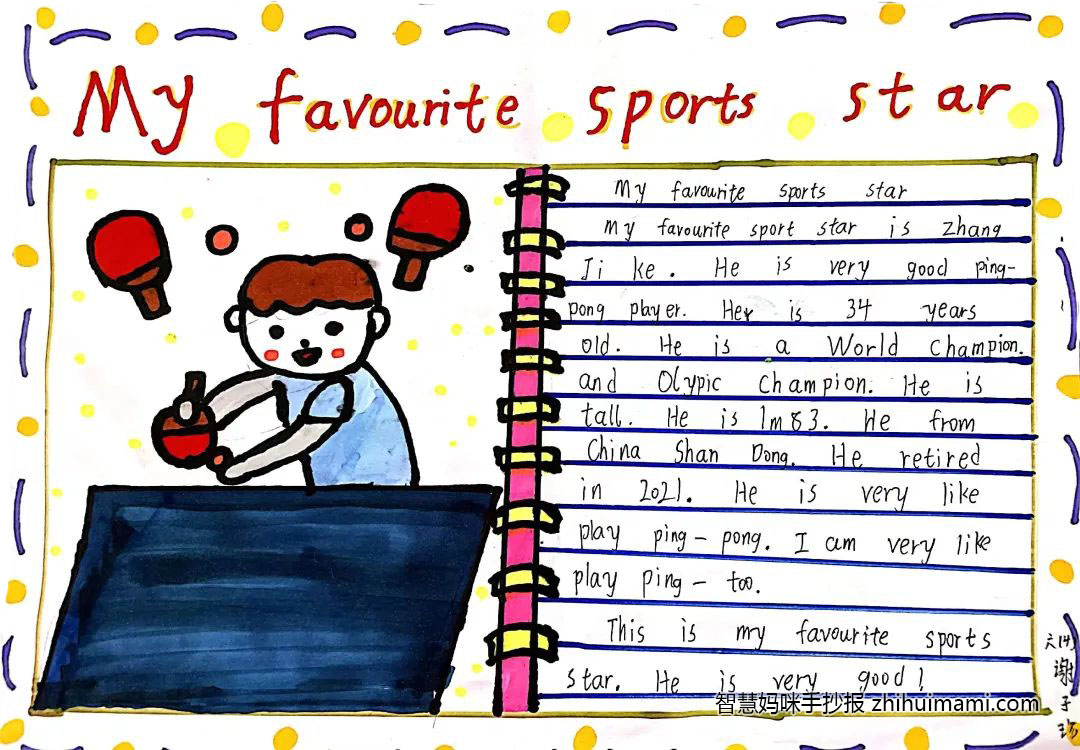 My favourite sports star
My favourite sports star
My favourite sport star is zhang
Ji ke. He is very good ping-
pong player. Her is 34 years
old. He is a World Champion.
and Olypic Champion. He is
tall. He is 1m83. He from
China Shan Dong. He retired
in 2021. He is very like
play ping-pong. I am very like
play ping- too.
This is my favourite sports
star. He is very good!
六(4)
谢
子
智慧妈咪手抄报 zhihuimami.com